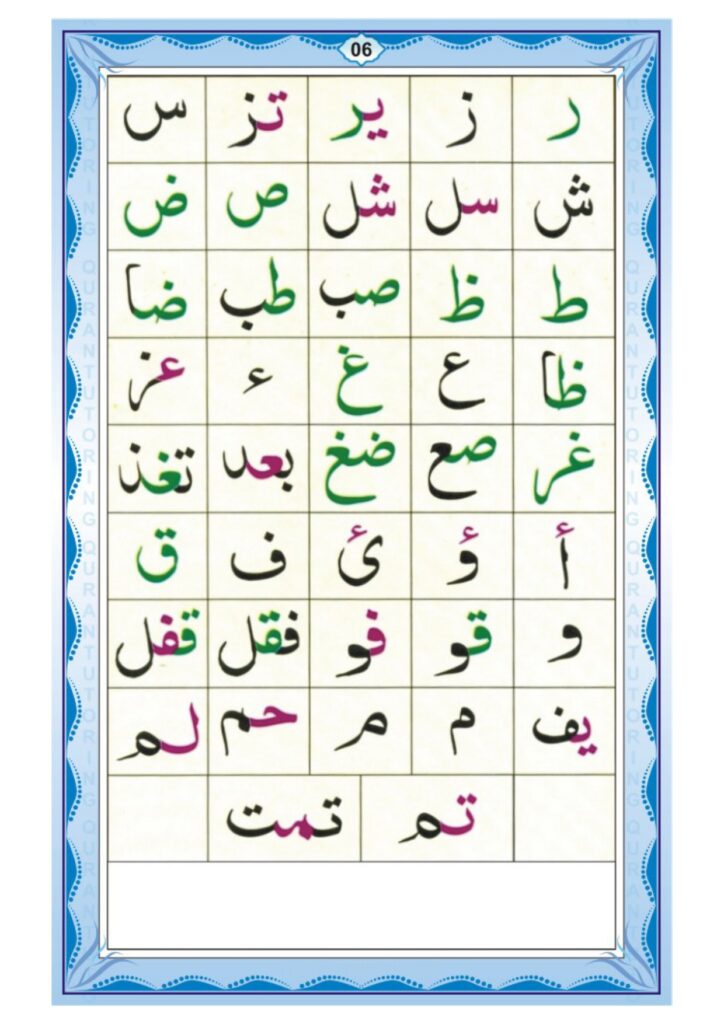 06
ر ز ير تز س
ش سل شل ص ض
ط ظ صب طب ضا
ظا ع غ ء عز
غر صع ضغ بعد تغذ
أ ؤ ئ ف ق
و قو فو فقل قفل
يف م م حم لم
تم تمت
QURANTUTORING QURANTUTORING
QURANTUTORING QURANTUTORING